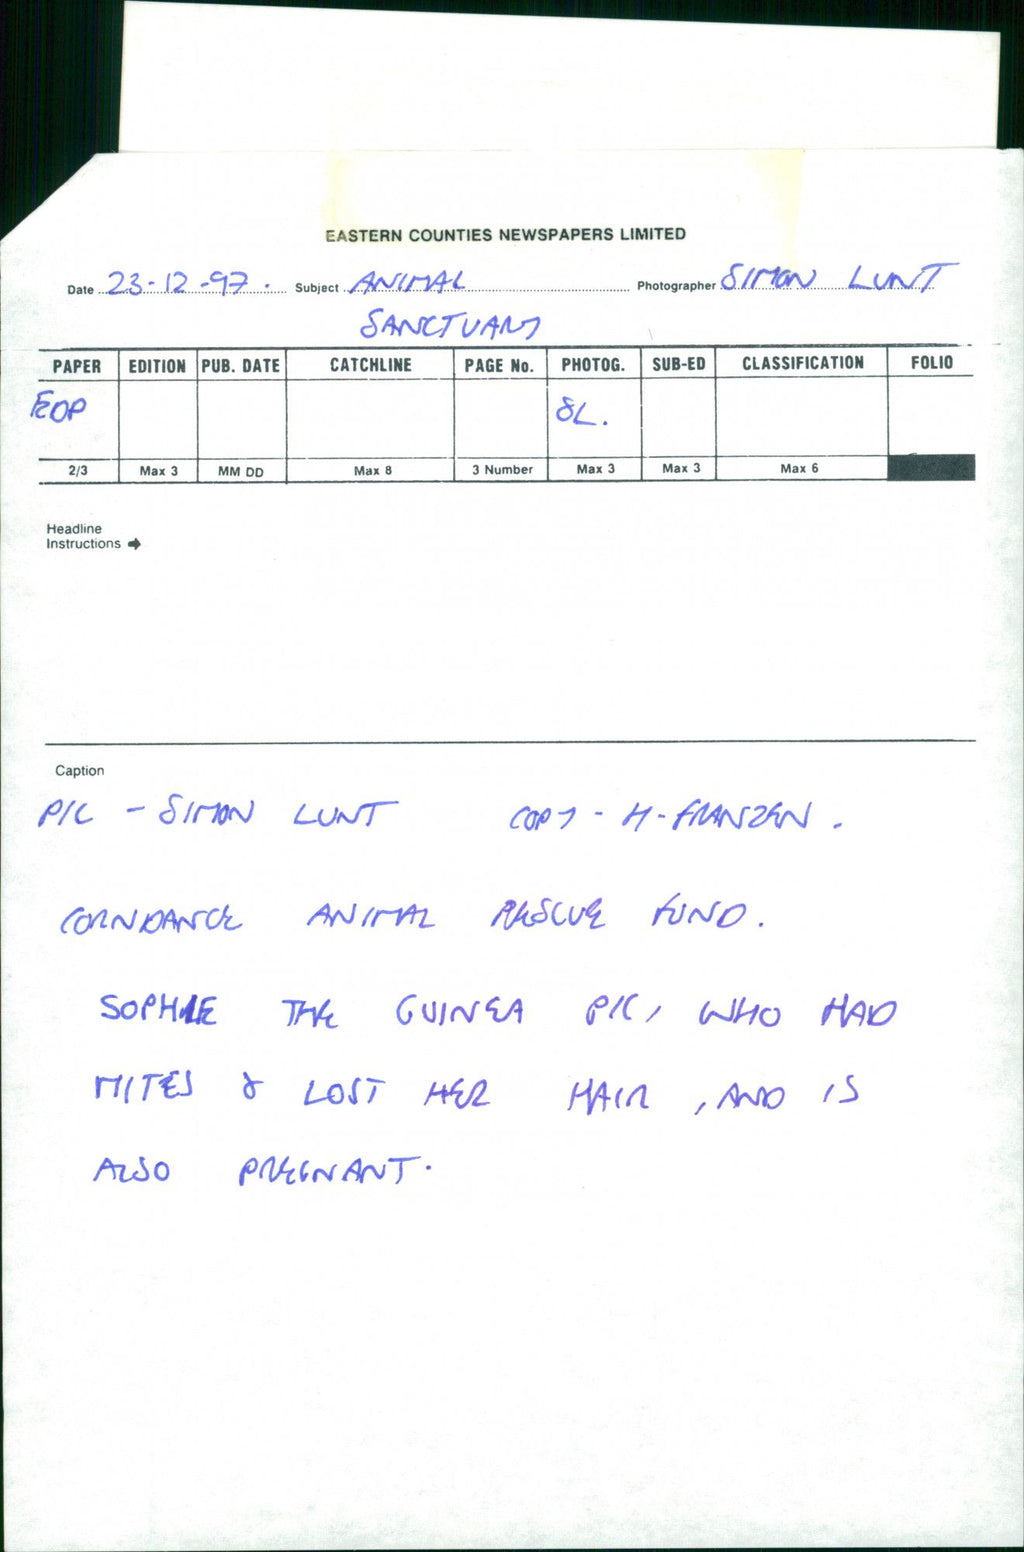 EASTERN COUNTIES NEWSPAPERS LIMITED
Date 23-12-97. Subject ANIMAL Photographer SIMON LUNT
SANCTUARY
PAPER EDITION PUB. DATE CATCHLINE PAGE No. PHOTOG. SUB-ED CLASSIFICATION FOLIO
EDP SL.
2/3 Max 3 MM DD Max 8 3 Number Max 3 Max 3 Max 6
Headline
Instructions ➔
Caption
PIC - SIMON LUNT COPY - H-FRANZEN.
CORNDANCE ANIMAL RESCUE FUND.
SOPHIE THE GUINEA PIG, WHO HAD
MITES & LOST HER HAIR, AND IS
ALSO PREGNANT.